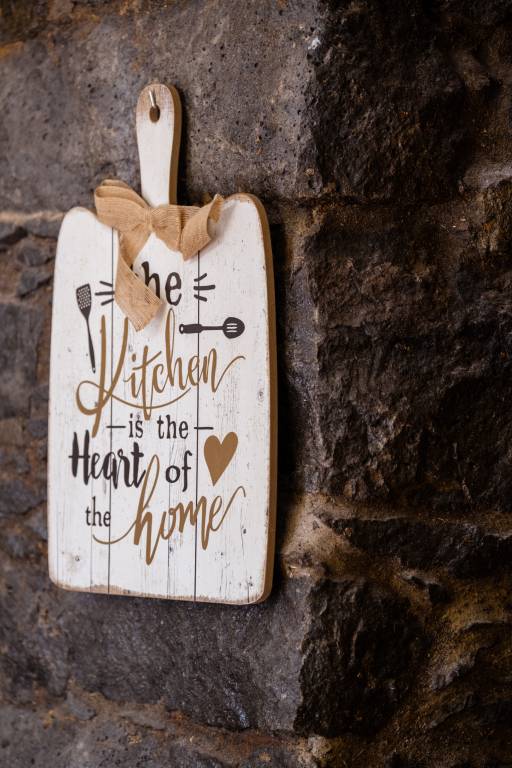 The
Kitchen
is the
Heart of
the home